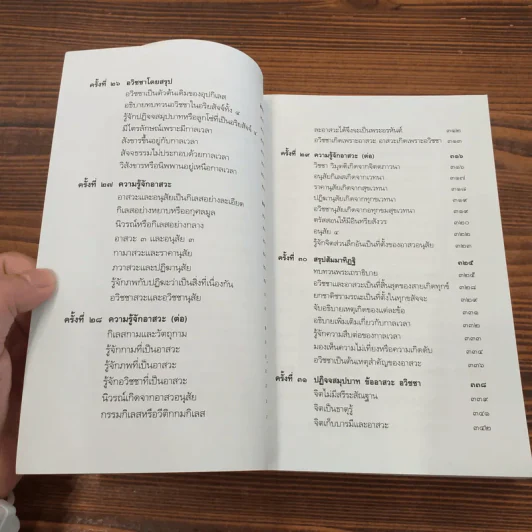 ครั้งที่ ๒๖ อวิชชาโดยสรุป
อวิชชาเป็นตัวต้นเดิมของอุปกิเลส
อธิบายทบทวนอวิชชาในอริยสัจจ์ทั้ง ๔
รู้จักปฏิจจสมุปบาทหรือลูกโซ่ที่เป็นอริยสัจจ์ ๔
มีไตรลักษณ์เพราะมีกาลเวลา
สังขารขึ้นอยู่กับกาลเวลา
สัจจธรรมไม่ประกอบด้วยกาลเวลา
วิสังขารหรือนิพพานอยู่เหนือกาลเวลา
ครั้งที่ ๒๗ ความรู้จักอาสวะ
อาสวะและอนุสัยเป็นกิเลสอย่างละเอียด
กิเลสอย่างหยาบหรืออกุศลมูล
นิวรณ์หรือกิเลสอย่างกลาง
อาสวะ ๓ และอนุสัย ๓
กามาสวะและราคานุสัย
ภวาสวะและปฏิฆานุสัย
รู้จักภพกับปฏิฆะว่าเป็นสิ่งที่เนื่องกัน
อวิชชาสวะและอวิชชานุสัย
ครั้งที่ ๒๘ ความรู้จักอาสวะ (ต่อ)
กิเลสกามและวัตถุกาม
รู้จักกามที่เป็นอาสวะ
รู้จักภพที่เป็นอาสวะ
รู้จักอวิชชาที่เป็นอาสวะ
นิวรณ์เกิดจากอาสวอนุสัย
กรรมกิเลสหรือวีติกกมกิเลส
ละอาสวะได้จึงจะเป็นพระอรหันต์ ๓๑๒
อวิชชาเกิดเพราะอาสวะ อาสวะเกิดเพราะอวิชชา ๓๑๓
ครั้งที่ ๒๙ ความรู้จักอาสวะ (ต่อ) ๓๑๖
วิชชา วิมุตติเกิดจากจิตตภาวนา ๓๑๗
อนุสัยกิเลสเกิดจากเวทนา ๓๑๗
ราคานุสัยเกิดจากสุขเวทนา ๓๑๘
ปฏิฆานุสัยเกิดจากทุกขเวทนา ๓๑๙
อวิชชานุสัยเกิดจากอทุกขมสุขเวทนา ๓๑๙
ตรัสสอนให้มีอินทรียสังวร ๓๒๐
อนุสัย ๗ ๓๒๒
รู้จักจิตส่วนลึกอันเป็นที่ตั้งของอาสวอนุสัย ๓๒๓
ครั้งที่ ๓๐ สรุปสัมมาทิฏฐิ ๓๒๕
ทบทวนพระเถราธิบาย ๓๒๕
อวิชชาและอาสวะเป็นที่สิ้นสุดของสายเกิดทุกข์ ๓๒๘
ยกชาติชรามรณะเป็นที่ตั้งในทุกขสัจจะ ๓๒๙
จับอธิบายเหตุเกิดของแต่ละข้อ ๓๓๑
อธิบายเพิ่มเติมเกี่ยวกับกาลเวลา ๓๓๒
รู้จักความสืบต่อของกาลเวลา ๓๓๓
มองเห็นความไม่เที่ยงหรือความเกิดดับ ๓๓๔
อวิชชาเป็นต้นเหตุสำคัญของอาสวะ ๓๓๖
ครั้งที่ ๓๑ ปฏิจจสมุปบาท ข้ออาสวะ อวิชชา ๓๓๘
จิตไม่มีสรีระสัณฐาน ๓๓๙
จิตเป็นธาตุรู้ ๓๔๑
จิตเก็บบารมีและอาสวะ ๓๔๒